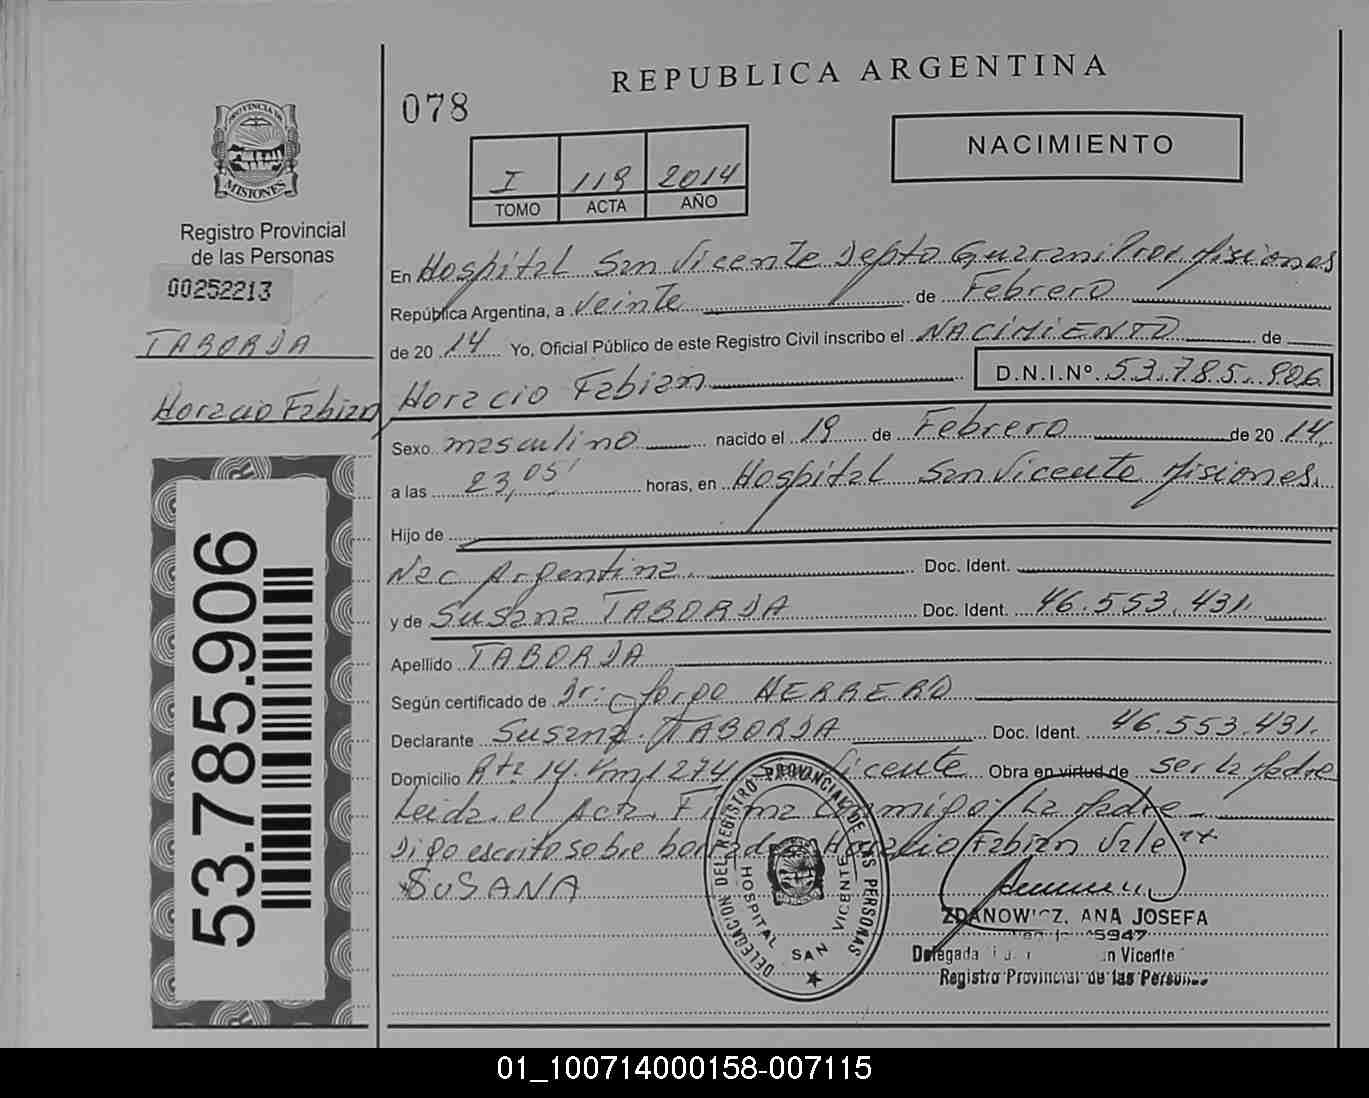 REPUBLICA ARGENTINA
078
NACIMIENTO
I 119 2014
TOMO ACTA AÑO
PROVINCIA DE
MISIONES
Registro Provincial
de las Personas
00252213
TABORDA
Horacio Fabian
53.785.906
En Hospital San Vicente Depto Guarani Prov Misiones
República Argentina, a veinte de Febrero
de 20 14 Yo, Oficial Público de este Registro Civil inscribo el NACIMIENTO de
Horacio Fabian D.N.I.Nº 53.785.906
Sexo masculino nacido el 19 de Febrero de 20 14
a las 23,05' horas, en Hospital San Vicente Misiones.
Hijo de
Nac Argentina. Doc. Ident.
y de Susana TABORDA Doc. Ident. 46.553.431.
Apellido TABORDA
Según certificado de Dr: Jorge HERRERO
Declarante Susana TABORDA Doc. Ident. 46.553.431.
Domicilio Rta 14. Km 1274 Vicente Obra en virtud de ser La Madre
Leida el Acta. Firma Conmigo: La Madre
Digo escrito sobre borrado: Horacio Fabian Vale
SUSANA
DELEGACION DEL REGISTRO PROVINCIAL DE LAS PERSONAS
HOSPITAL SAN VICENTE
ZDANOWICZ, ANA JOSEFA
5947
Delegada Vicente
Registro Provincial de las Personas
01_100714000158-007115